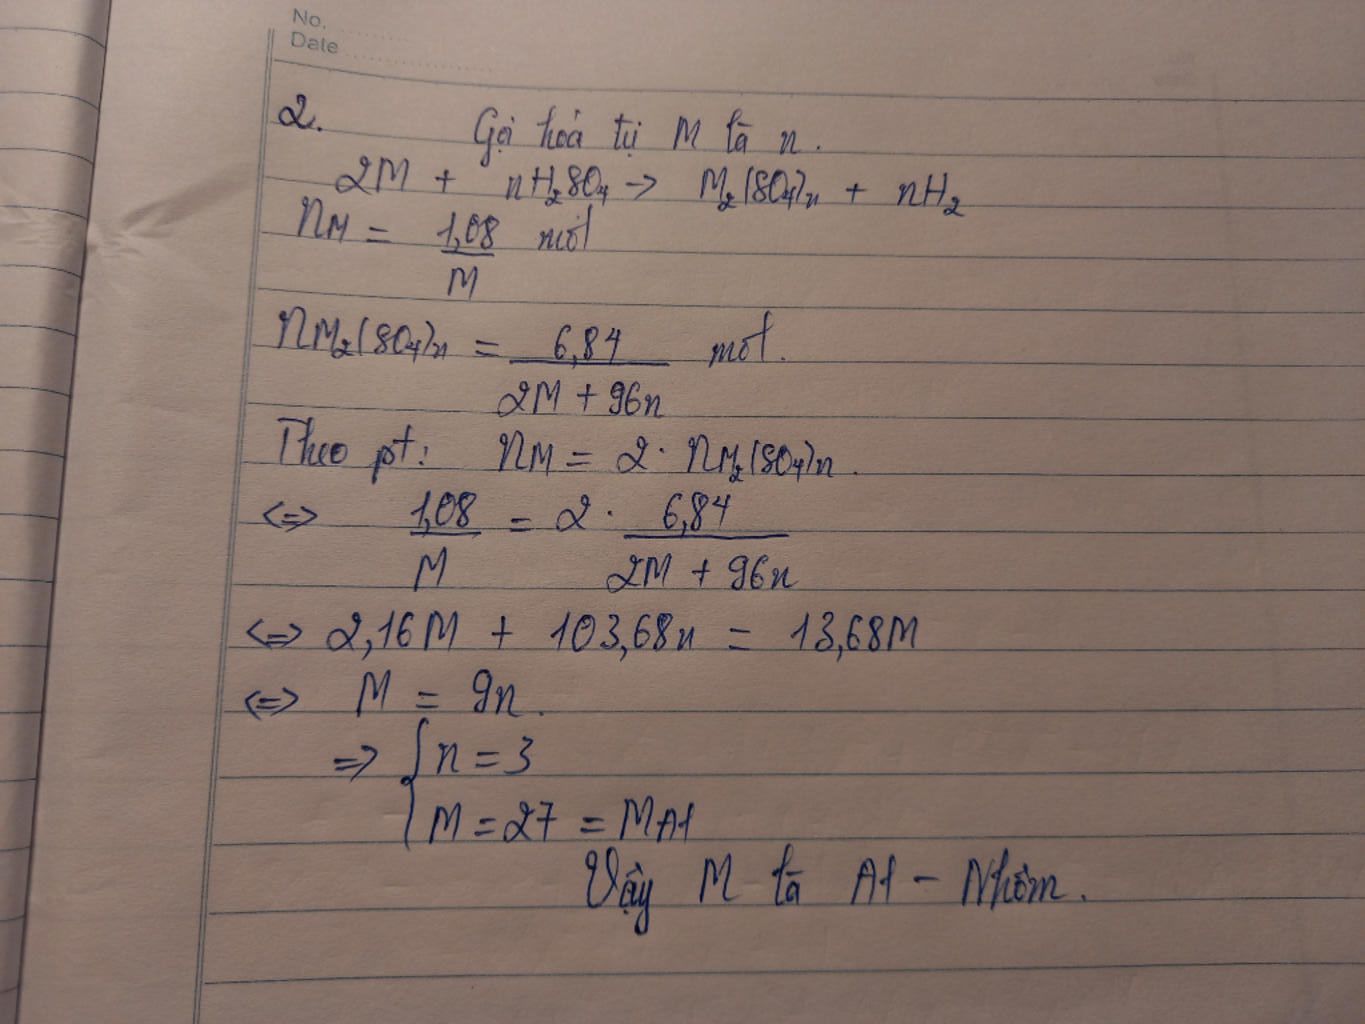 No.
Date
2. Gọi hoá trị M là n.
2M + nH₂SO₄ → M₂(SO₄)ₙ + nH₂
nM = 1,08/M mol
nM₂(SO₄)ₙ = 6,84/(2M + 96n) mol.
Theo pt: nM = 2 · nM₂(SO₄)ₙ.
<=> 1,08/M = 2 · 6,84/(2M + 96n)
<=> 2,16M + 103,68n = 13,68M
<=> M = 9n.
=> { n = 3
M = 27 = MAl
Vậy M là Al - Nhôm.